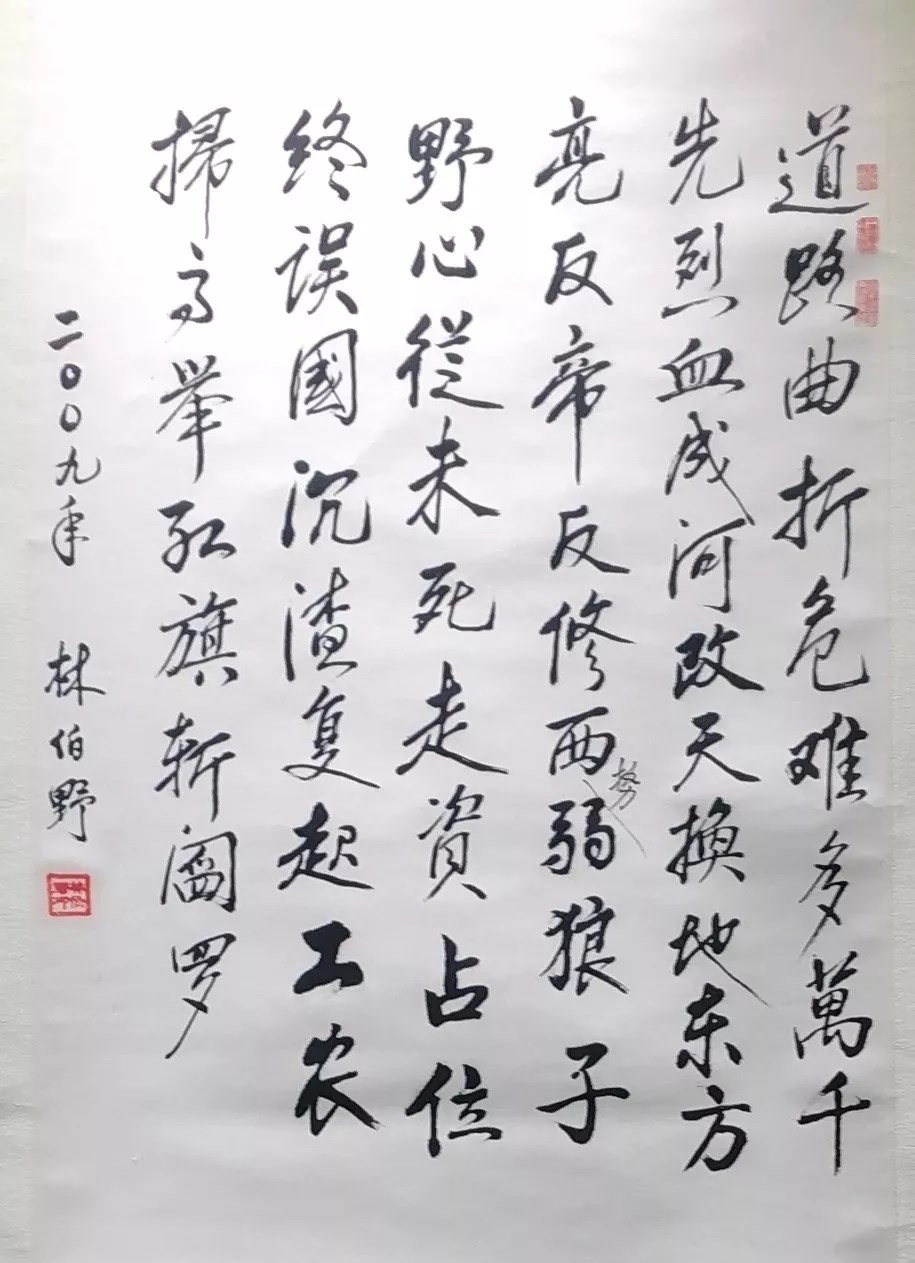 道路曲折危难多萬千
先烈血成河改天換地东方
亮反帝反修两势弱狼子
野心從未死走資占位
终误國沉渣复起工农
掃高举红旗斬阎罗
二〇〇九年 林伯野